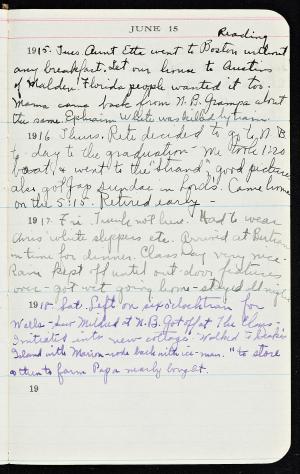 JUNE 15
Reading
1915. Tues. Aunt Etta went to Boston without
any breakfast. Let our house to Austins
of Malden. Florida people wanted it too.
Mama came back from N.B. Gramps about
the same. Ephraim White was killed by train.
1916 Thurs. Pete decided to go to N B
to-day to the graduation - We took 1:20
boat, & went to the Strand, good picture
also got fap sundae in Lords. Came home
on the 5:15 - Retired early -
1917. Fri. Trunk not here. Had to wear
Avis' white slippers etc. Arrived at
in time for dinner. Class Day very nice.
Rain kept off until out-door
over - got wet going home - stayed all night
1918. Sat. Left on six o'clock train for
Wells - saw Mildred at N.B. Got off at The Elms -
Initiated into new cottage. Walked to Drakes
Island with Marion - rode back with ice-man. "to store
& then to farm Papa nearly bought.
19